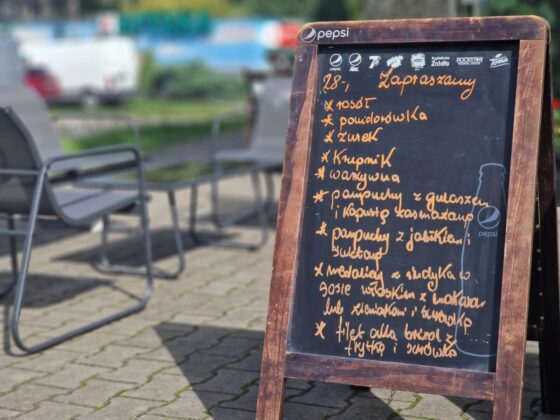 pepsi
28,- Zapraszamy
* rosół
* pomidorówka
* żurek
* Krupnik
* warzywna
* pampuchy z gulaszem
i kapustą zasmażaną
* pampuchy z jabłkiem i
śmietaną
* medaliony z indyka w
sosie włoskim z makaron
lub ziemniakami i surówką
* filet alla brizol z
frytką i surówką
pepsi